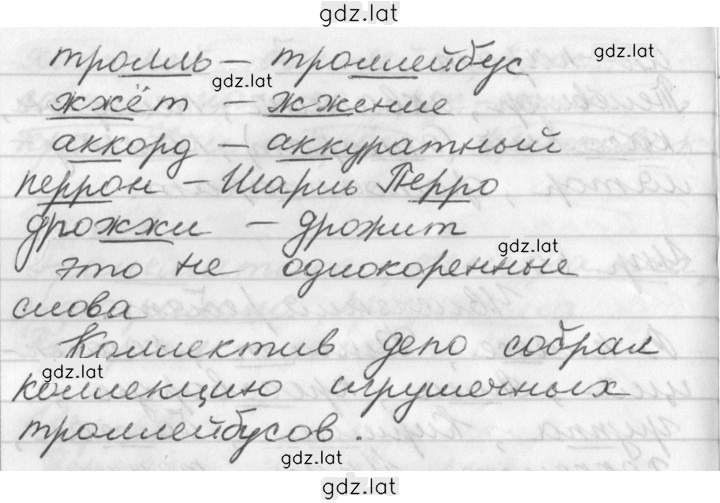 gdz.lat
тролль – троллейбус
gdz.lat
gdz.lat
жжёт – жжение
аккорд – аккуратный
gdz.lat
перрон – Шарль Перро
дрожжи – дрожит
gdz.lat
это не однокоренные
слова
Коллектив депо собрал
gdz.lat
коллекцию игрушечных
троллейбусов.
gdz.lat
gdz.lat